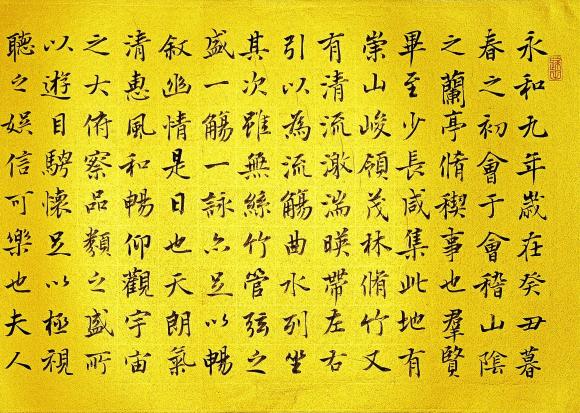 永和九年歲在癸丑暮
春之初會于會稽山陰
之蘭亭脩稧事也羣賢
畢至少長咸集此地有
崇山峻領茂林脩竹又
有清流激湍暎帶左右
引以為流觴曲水列坐
其次雖無絲竹管弦之
盛一觴一詠亦足以暢
叙幽情是日也天朗氣
清惠風和暢仰觀宇宙
之大俯察品類之盛所
以遊目騁懷足以極視
聽之娛信可樂也夫人